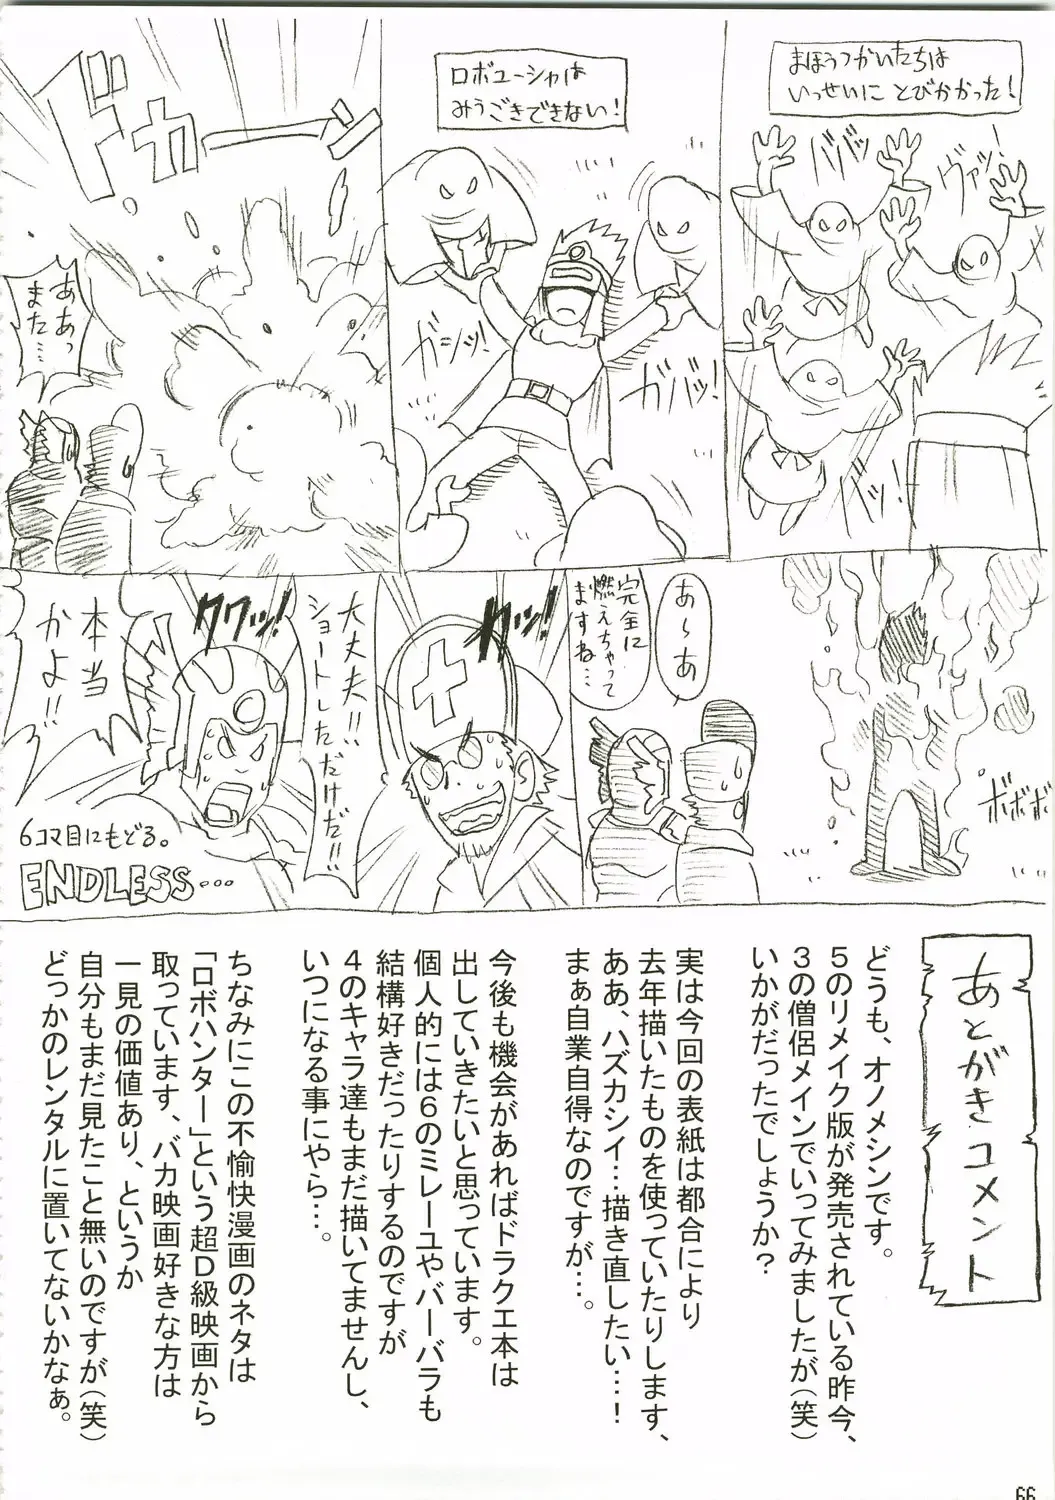 まほうつかいたちは
いっせいに とびかかった!
ババッ
ヴァッ!
バッ!
ロボユーシャは
みうごきできない!
ガシッ!
ガバッ!
ドカーン
ああっ
また…
ボボボ
あ〜あ
完全に
燃えちゃって
ますね…
クワッ!
大丈夫!!
ショートしただけだ!!
クワッ!
本当
かよ!!
6コマ目にもどる。
ENDLESS…
あとがきコメント
どうも、オノメシンです。
5のリメイク版が発売されている昨今、
3の僧侶メインでいってみましたが(笑)
いかがだったでしょうか?
実は今回の表紙は都合により
去年描いたものを使っていたりします、
ああ、ハズカシイ…描き直したい…!
まぁ自業自得なのですが…。
今後も機会があればドラクエ本は
出していきたいと思っています。
個人的には6のミレーユやバーバラも
結構好きだったりするのですが
4のキャラ達もまだ描いてませんし、
いつになる事にやら…。
ちなみにこの不愉快漫画のネタは
「ロボハンター」という超D級映画から
取っています、バカ映画好きな方は
一見の価値あり、というか
自分もまだ見たこと無いのですが(笑)
どっかのレンタルに置いてないかなぁ。
66